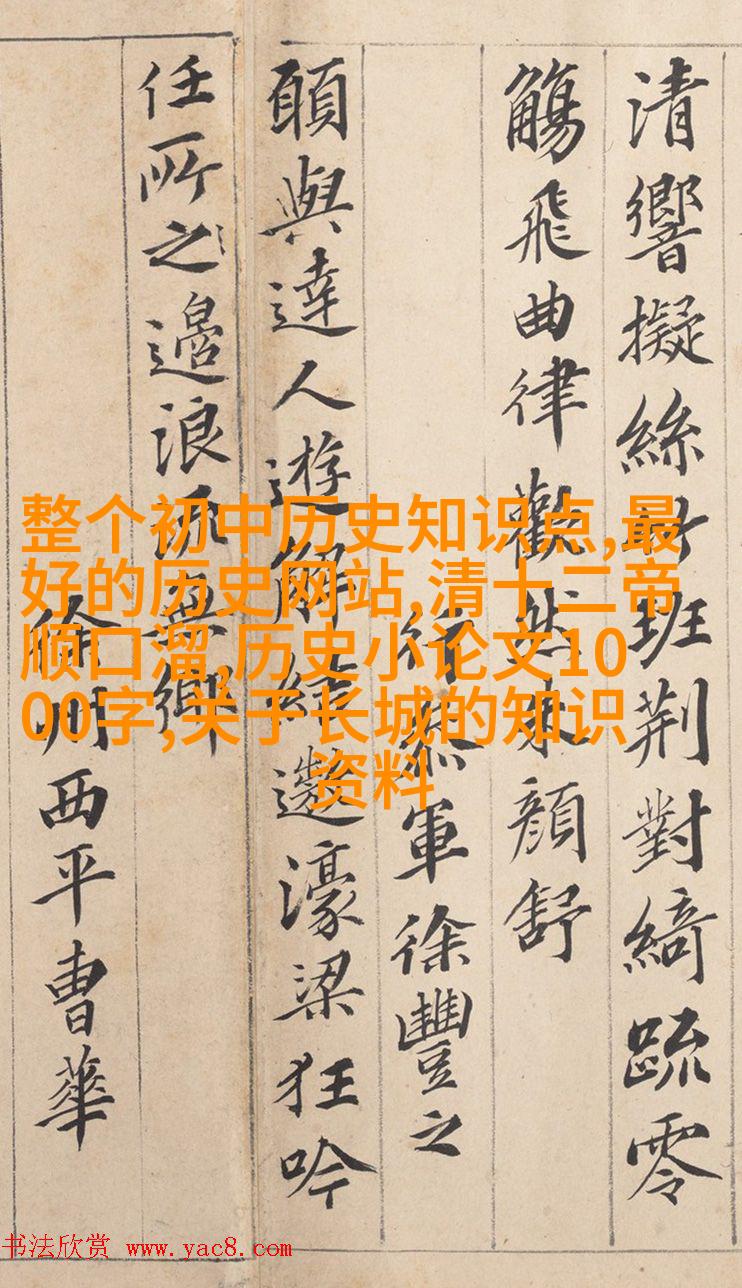 清響擬絲竹班荆對綺疏零
觴飛曲律歡然朱顔舒
行參軍徐豐之
願與達人遊解結遨濠梁狂吟
任所之邉浪流無鄉
徐州西平曹華
整个初中历史知识点,最
好的历史网站,清十二帝
顺口溜,历史小论文10
00字,关于长城的知识
资料
书法欣赏 www.yac8.com